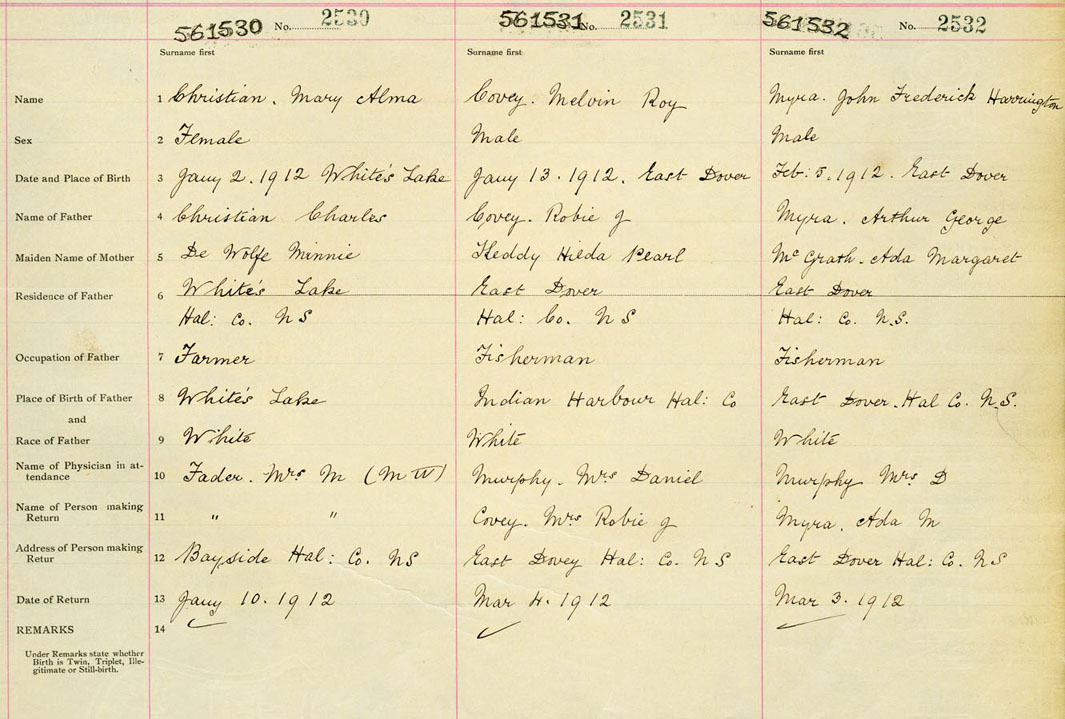 561530 No. 2530 561531 No. 2531 561532 No. 2532
Surname first Surname first Surname first
Name 1 Christian. Mary Alma Covey. Melvin Roy Myra. John Frederick Harrington
Sex 2 Female Male Male
Date and Place of Birth 3 Jany 2. 1912 White's Lake Jany 13. 1912. East Dover Feb: 5. 1912. East Dover
Name of Father 4 Christian Charles Covey. Robie J Myra. Arthur George
Maiden Name of Mother 5 De Wolfe Minnie Keddy Hilda Pearl McGrath. Ada Margaret
Residence of Father 6 White's Lake East Dover East Dover
Hal: Co. N S Hal: Co. N S Hal: Co. N.S.
Occupation of Father 7 Farmer Fisherman Fisherman
Place of Birth of Father 8 White's Lake Indian Harbour Hal: Co East Dover. Hal Co. N.S.
and
Race of Father 9 White White White
Name of Physician in at-
tendance 10 Fader. Mrs M (M W) Murphy. Mrs Daniel Murphy Mrs D
Name of Person making
Return 11 " " Covey. Mrs Robie J Myra. Ada M
Address of Person making
Retur 12 Bayside Hal: Co. NS East Dovey Hal: Co. N S East Dover Hal: Co. N S
Date of Return 13 Jany 10. 1912 Mar 4. 1912 Mar 3. 1912
REMARKS 14
Under Remarks state whether
Birth is Twin, Triplet, Ille-
gitimate or Still-birth.